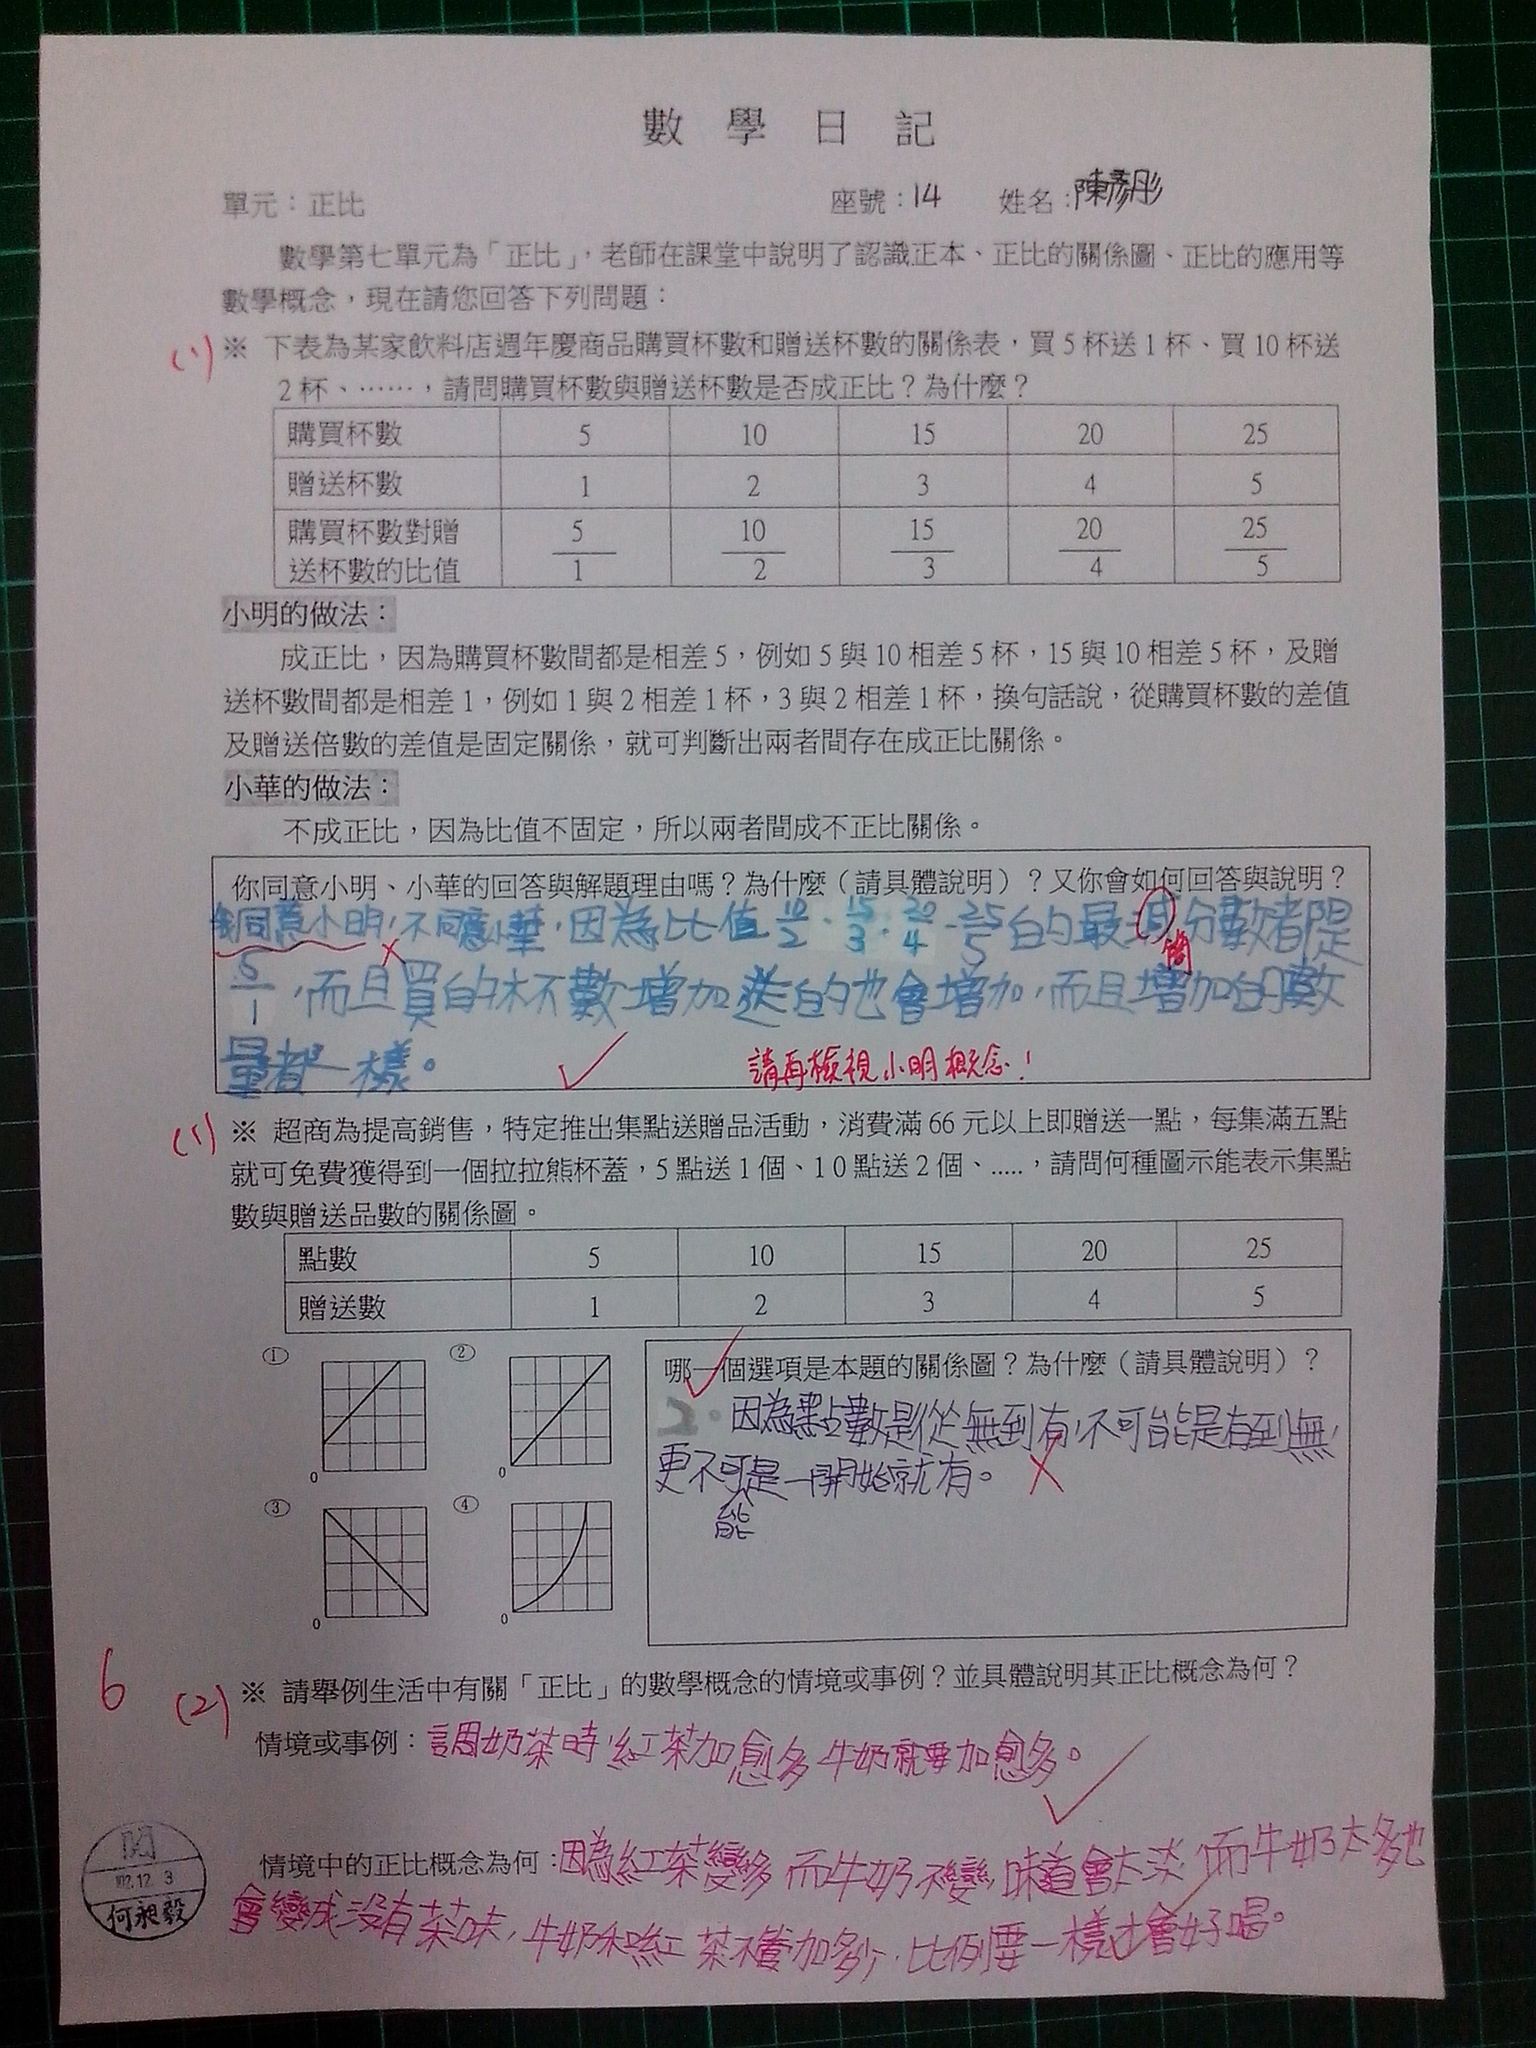 數學日記
單元：正比 座號：14 姓名：陳彥彤
數學第七單元為「正比」，老師在課堂中說明了認識正本、正比的關係圖、正比的應用等
數學概念，現在請您回答下列問題：
(1) ※ 下表為某家飲料店週年慶商品購買杯數和贈送杯數的關係表，買 5 杯送 1 杯、買 10 杯送
2 杯、……，請問購買杯數與贈送杯數是否成正比？為什麼？
購買杯數 5 10 15 20 25
贈送杯數 1 2 3 4 5
購買杯數對贈送杯數的比值 5/1 10/2 15/3 20/4 25/5
小明的做法：
成正比，因為購買杯數間都是相差 5，例如 5 與 10 相差 5 杯，15 與 10 相差 5 杯，及贈
送杯數間都是相差 1，例如 1 與 2 相差 1 杯，3 與 2 相差 1 杯，換句話說，從購買杯數的差值
及贈送倍數的差值是固定關係，就可判斷出兩者間存在成正比關係。
小華的做法：
不成正比，因為比值不固定，所以兩者間成不正比關係。
你同意小明、小華的回答與解題理由嗎？為什麼（請具體說明）？又你會如何回答與說明？
同意小明，不同意小華，因為比值 10/2、15/3、20/4、25/5 的最減分數都是
簡
5/1，而且買的杯數增加送的也會增加，而且增加的數
量都一樣。
請再檢視小明概念！
(1) ※ 超商為提高銷售，特定推出集點送贈品活動，消費滿 66 元以上即贈送一點，每集滿五點
就可免費獲得到一個拉拉熊杯蓋，5 點送 1 個、10 點送 2 個、.....，請問何種圖示能表示集點
數與贈送品數的關係圖。
點數 5 10 15 20 25
贈送數 1 2 3 4 5
① ②
0 0
③ ④
0 0
哪一個選項是本題的關係圖？為什麼（請具體說明）？
2. 因為點數是從無到有，不可能是有到無，
更不可是一開始就有。
能
6
(2) ※ 請舉例生活中有關「正比」的數學概念的情境或事例？並具體說明其正比概念為何？
情境或事例：調奶茶時，紅茶加愈多牛奶就要加愈多。
情境中的正比概念為何：因為紅茶變多而牛奶不變，味道會太淡，而牛奶太多也
會變成沒有茶味，牛奶和紅茶不管加多少，比例要一樣才會好喝。
閱
102.12.3
何昶毅